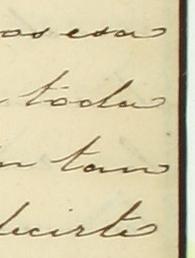 os esa
toda
n tan
decirte